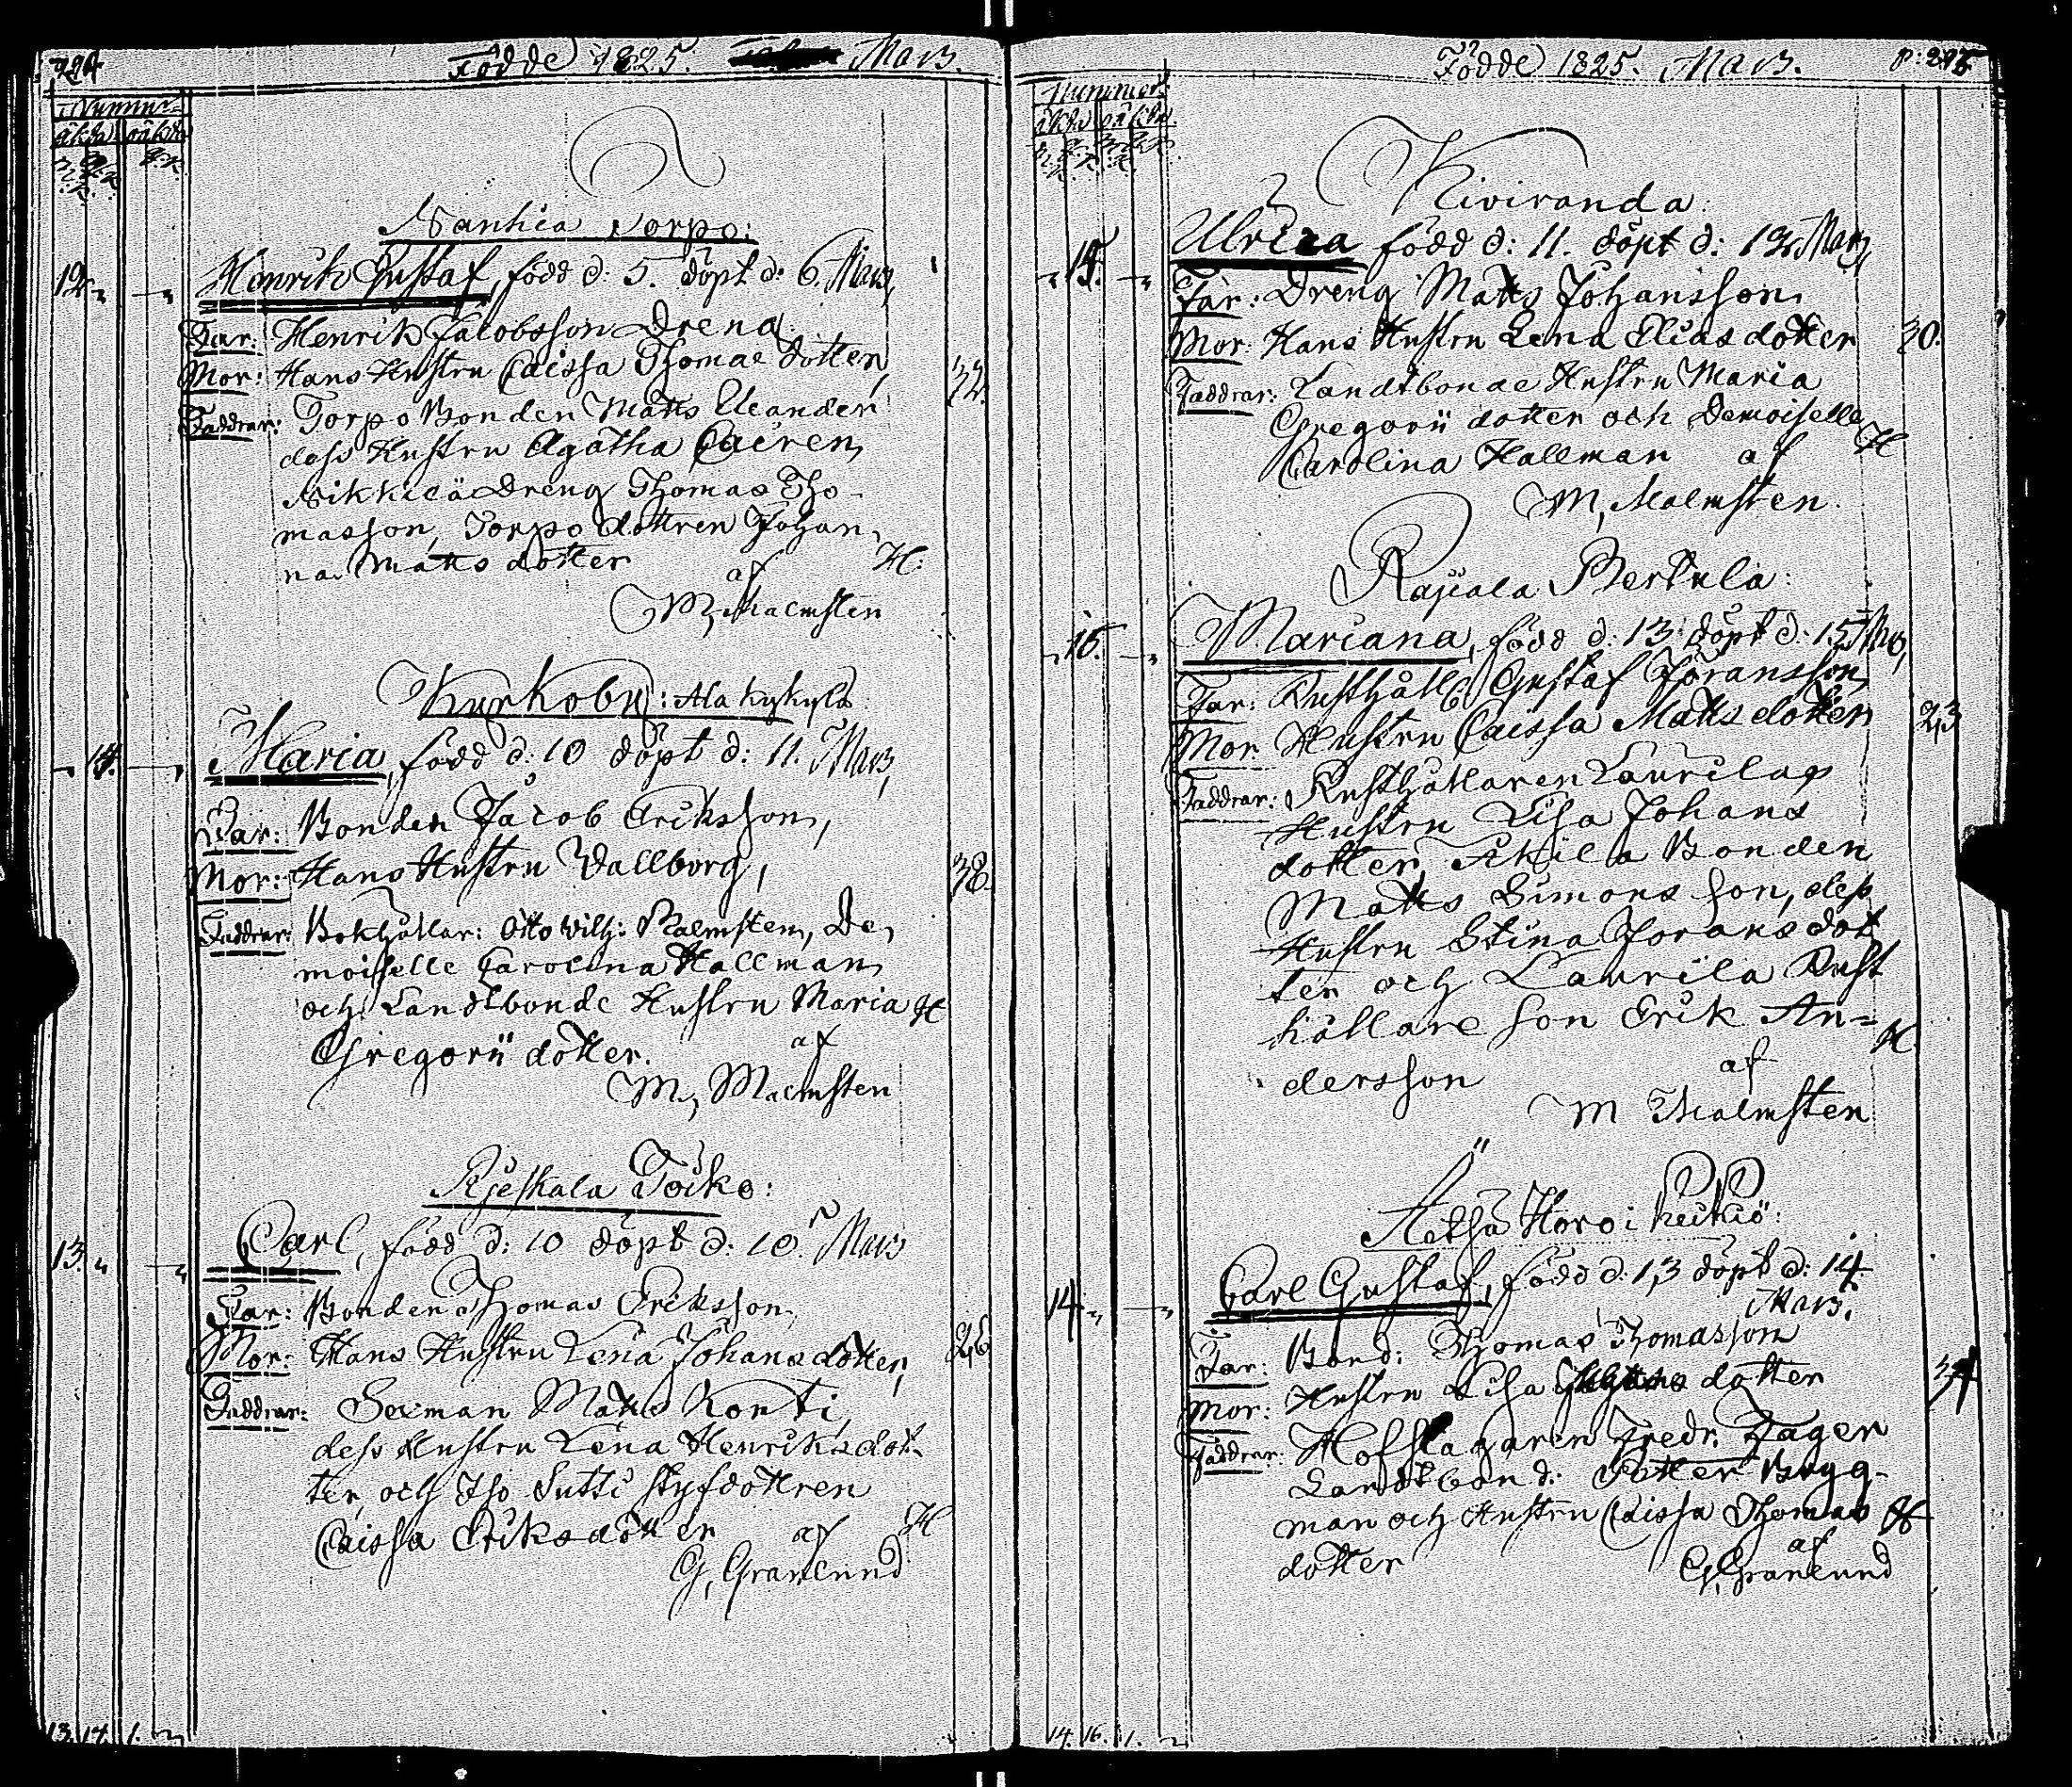 224
Födde 1825. Mars.
Nummer
äkta oäkta
Nankia Torpo:
12. Henrik Gustaf, född d: 5. döpt d: 6. Mars,
Far: Henrik Jacobsson Dreng
Mor: Hans Hustru Caissa Thomae dotter, 32.
Faddrar: Torpo Bonden Matts Eleander
dess Hustru Agatha Cairen,
Nikkilä Dreng Thomas Tho-
masson, Torpo dottren Johan-
na Matts dotter af H.
M. Malmsten
Kyrkoby: Ala kykylä
14. Maria, född d: 10 döpt d: 11. Mars,
Far: Bonden Jacob Eriksson,
Mor: Hans Hustru Wallborg, 38.
Faddrar: Bokhållar: Otto Wilh: Malmsten, De-
moiselle Carolina Hallman
och Landtbonde Hustru Maria H
Gregorii dotter. af
M, Malmsten
Toiko:
13. Carl, född d: 10 döpt d: 10. Mars
Far: Bonden Thomas Eriksson,
Mor: Hans Hustru Lena Johans dotter, 26
Faddrar: Sexman Matts Konti,
dess Hustru Lena Henriksdot-
ter, och Iso Sutti styfdottren
Caissa Eriksdotter af H
G, Granlund
13. 14. 1.
Födde 1825. Mars. p: 225
Nummer
äkta oäkta
Kiviranda:
15. Ulrica född d: 11. döpt d: 13. Mars,
Far: Dreng Matts Johansson
Mor: Hans Hustru Lena Elias dotter 30.
Faddrar: Landtbonde Hustru Maria
Gregorii dotter och Demoiselle
Carolina Hallman af H
M, Malmsten.
Rajala Perkula:
15. Mariana, född d: 13. döpt d: 15 Mrs,
Far: Rusthåll: Gustaf Jöransson,
Mor: Hustru Caissa Matts dotter 23
Faddrar: Rusthållaren Laurilas
Hustru Lisa Johans
dotter, Sikila Bonden
Matts Simons son, dess
Hustru Stina Jorans dot
ter och Laurila Rust
hållare son Erik An-
dersson af H
M Malmsten
Horo i
14. Carl Gustaf, född d: 13 döpt d: 14.
Mars.
Far: Bond: Thomas Thomasson
Mor: Hustru Lisa dotter 34
Faddrar: Hofslagaren Fredr. Zager
Landtbond: Petter Brygg-
man och Hustru Caissa Thomas H
dotter af
G, Granlund
14. 16. 1.